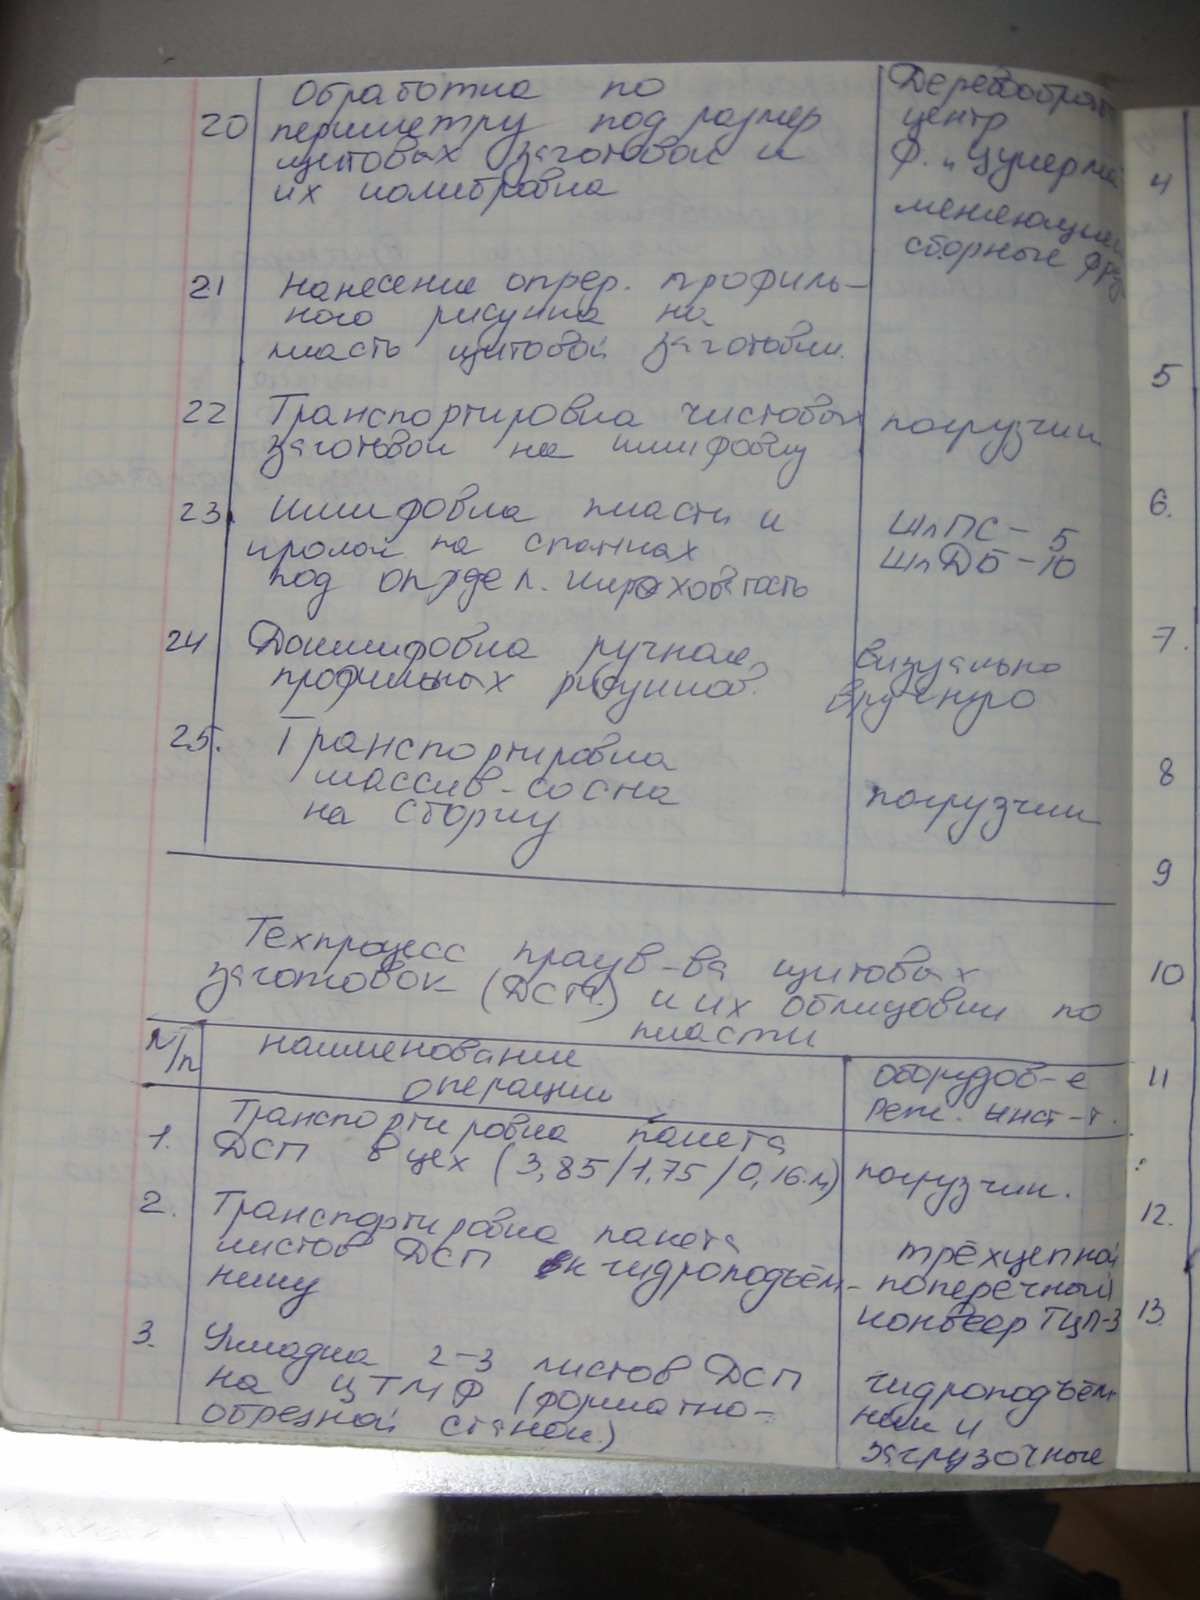 Обработка по
20 периметру под размер
щитовых заготовок и
их калибровка
Деревообраб
центр
ф. „Цукерма
меняющиеся
сборные фрез
21 Нанесение опред. профиль-
ного рисунка на
пласть щитовой заготовки.
22 Транспортировка чистовых
заготовок на шлифовку
погрузчик
23. Шлифовка пласти и
кромок на станках
под опредeл. шероховатость
ШлПС - 5
ШлДБ - 10
24 Дошлифовка ручная
профильных рисунков.
визуально
вручную
25. Транспортировка
массив-сосна
на сборку
погрузчик
Техпроцесс произв-ва щитовых
заготовок (ДСтП) и их облицовки по
пласти
N/п наименование
операции
оборудов-е
реж. инст-т.
1. Транспортировка пакета
ДСП в цех (3,85/1,75/0,16м)
погрузчик.
2. Транспортировка пакета
листов ДСП к гидроподъём-
нику
трёхцепной
поперечный
конвеер ТЦП-3
3. Укладка 2-3 листов ДСП
на ЦТМФ (форматно-
обрезной станок.)
гидроподъём-
ник и
загрузочные
4
5
6.
7.
8
9
10
11
12.
13.